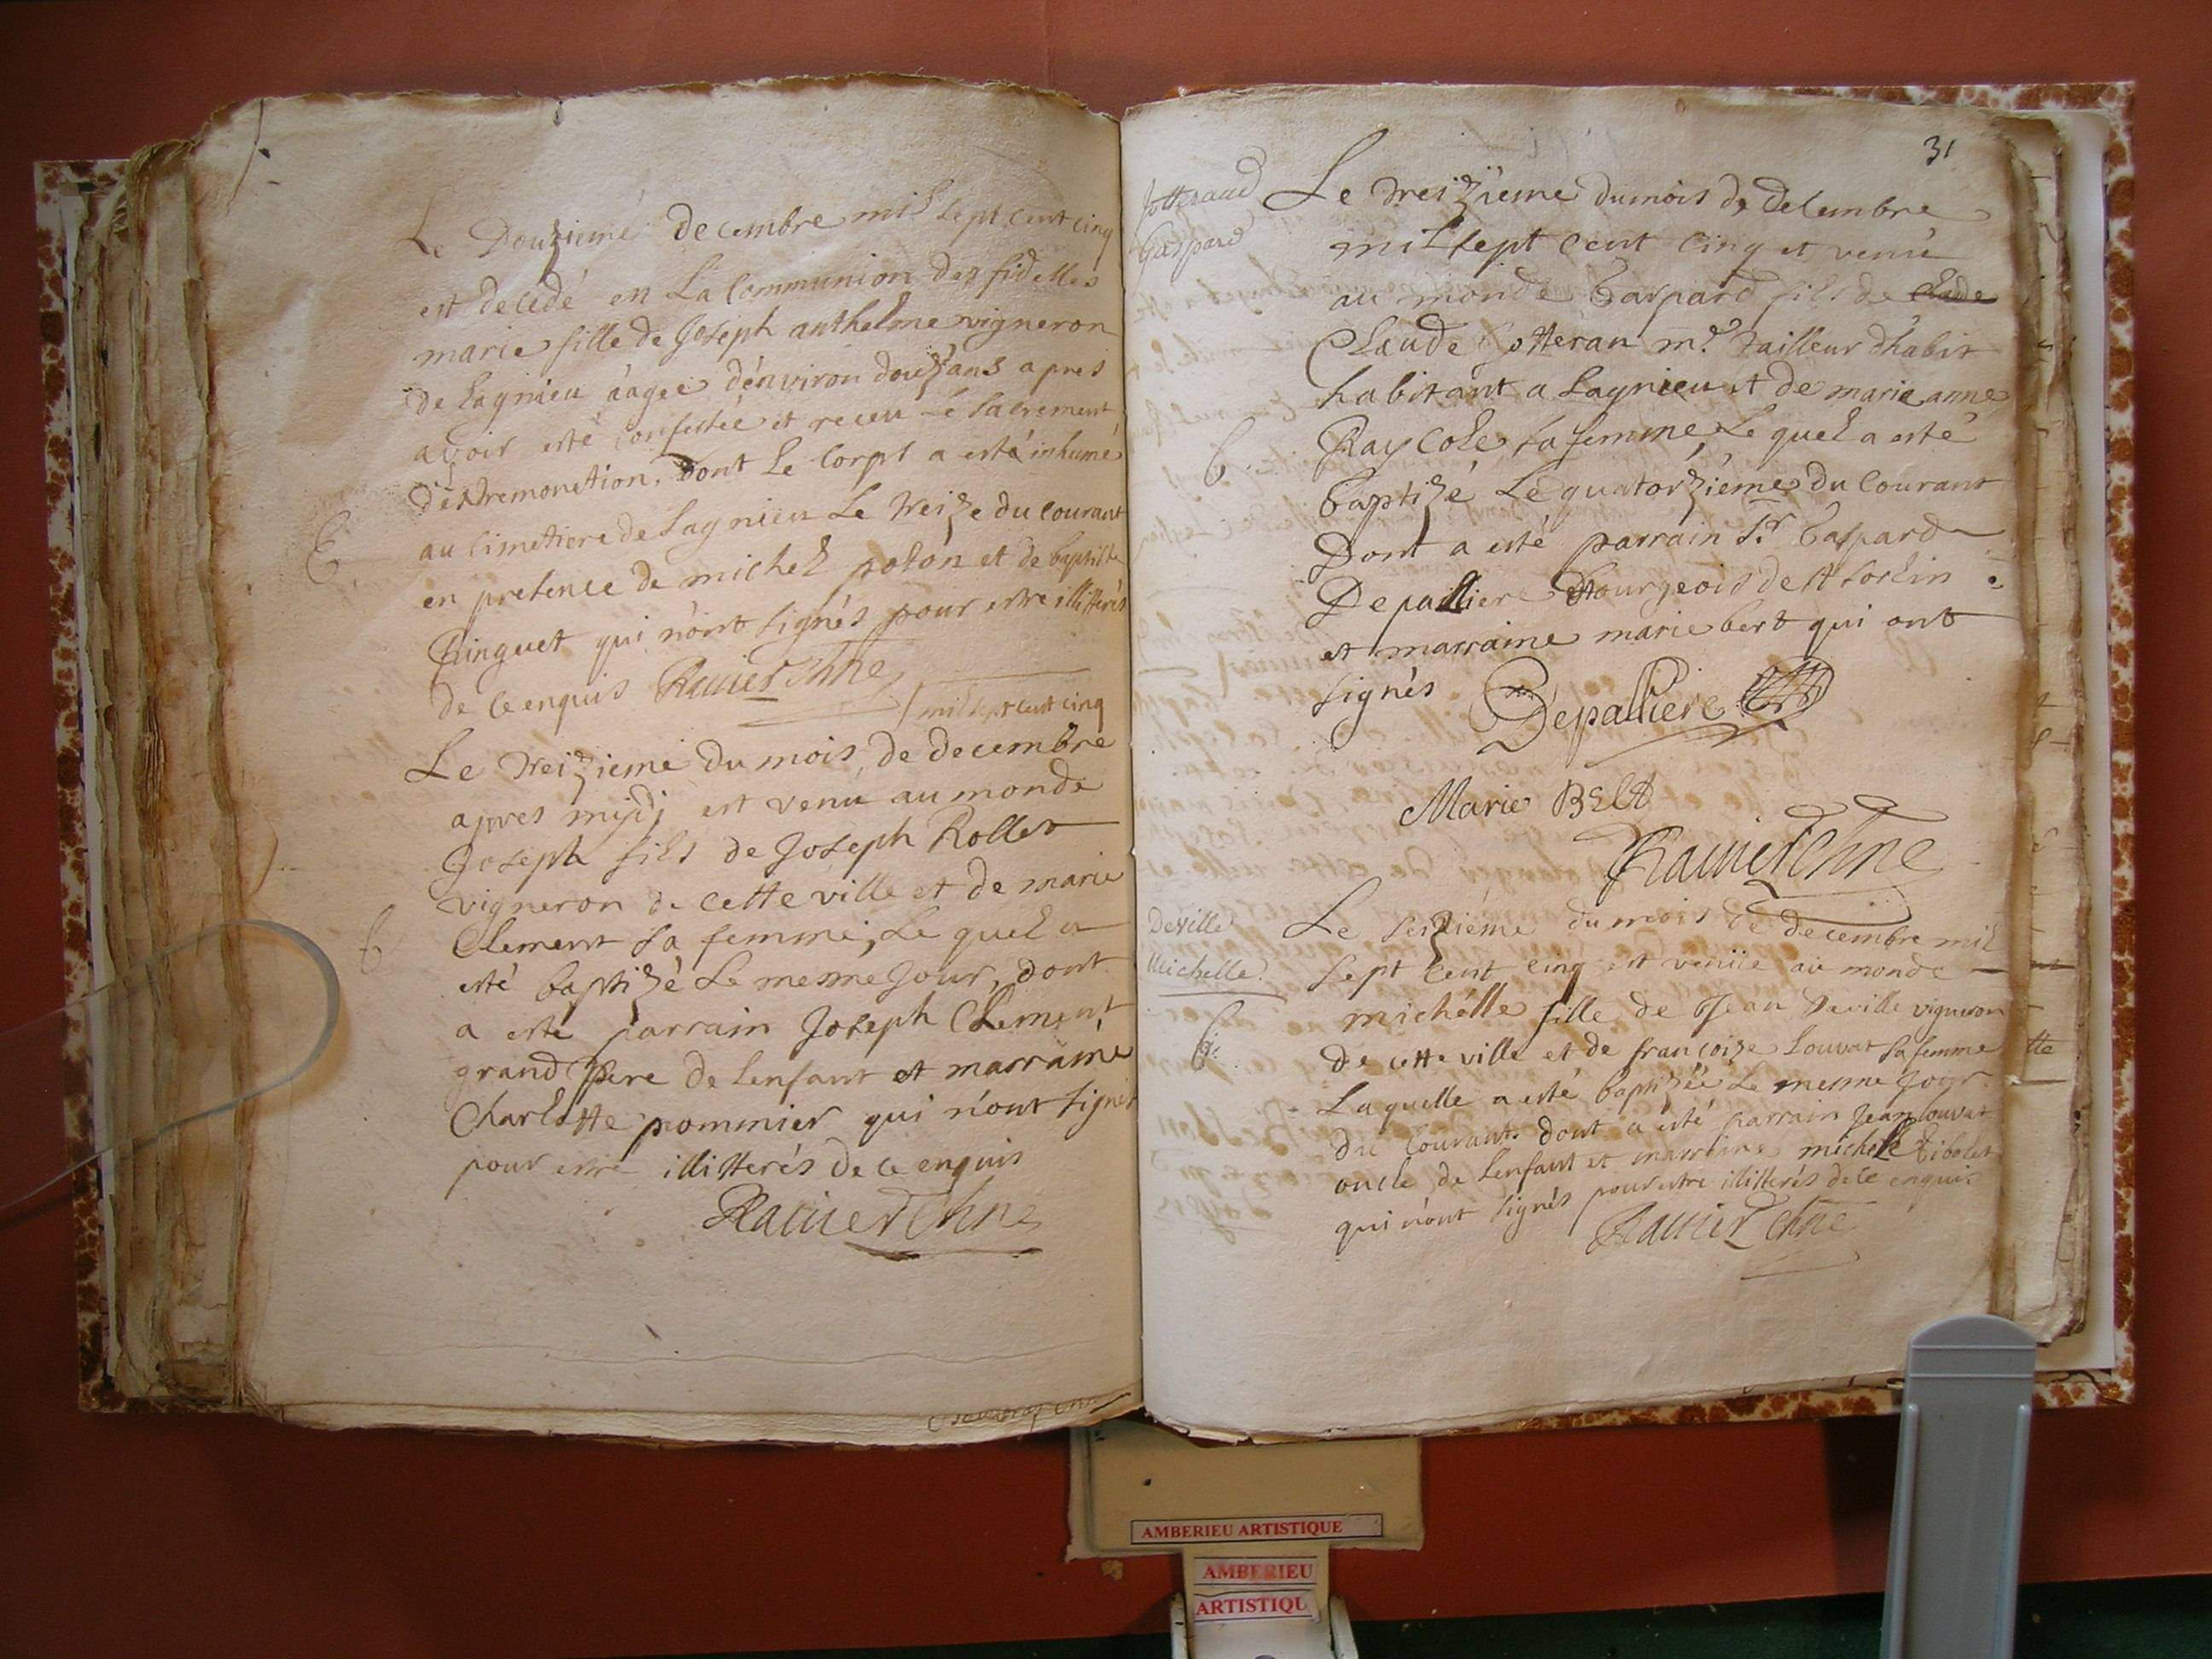 Le Douzieme decembre mil sept cent cinq
est decedé en La Communion des fidelles
marie fille de Joseph anthelme vigneron
de Lagnieu àagée dénviron douz ans apres
avoir esté confessée et receu Le sacrement
déxtremonction, Dont Le Corps a esté inhumé
au Cimettiere de Lagnieu Le treize du courant
en presence de michel polon et de baptiste
Ringuet qui n'ont signés pour estre illitterés
de ce enquis Ravier
E
mil sept cent cinq
Le treizieme du mois de decembre
apres midj est venu au monde
Joseph fils de Joseph Rollet
vigneron de cette ville et de marie
Clement sa femme, Le quel a
esté baptizé Le mesme Jour, dont
a esté parrain Joseph Clement
grand Pere de Lenfant et marraine
Charlotte pommier qui n'ont signés
pour estre illitterés de ce enquis
Ravier
b
31
Jotteraud
Gaspard
Le treizieme du mois de decembre
mil sept cent cinq est venu
au monde Gaspard fils de Claude
Claude Jotteran m.e tailleur d'habit
habitant a Lagnieu et de marie anne
Raycole sa femme, Le quel a esté
baptizé Le quatorziéme du Courant
Dont a esté parrain Sr Gaspard
Depalliere Bourgeois de St Sorlin
et marraine marie bert qui ont
signés Depalliere
b
Marie Bert
Ravier
Deville
Michelle
Le seizieme du mois de decembre mil
sept Cent cinq est venüe au monde
michélle fille de Jean Deville vigneron
de cette ville et de françoize Louvat sa femme
Laquelle a esté baptizée Le mesme Jour
du Courant. dont a esté parrain Jean Louvat
oncle de Lenfant et marraine michelle
qui n'ont signés pour estre illitterés de ce enquis
Ravier
b
AMBERIEU ARTISTIQUE
AMBERIEU
ARTISTIQU